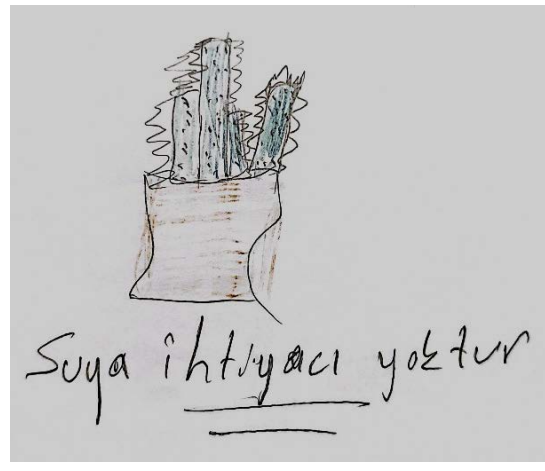 Suya ihtiyacı yoktur